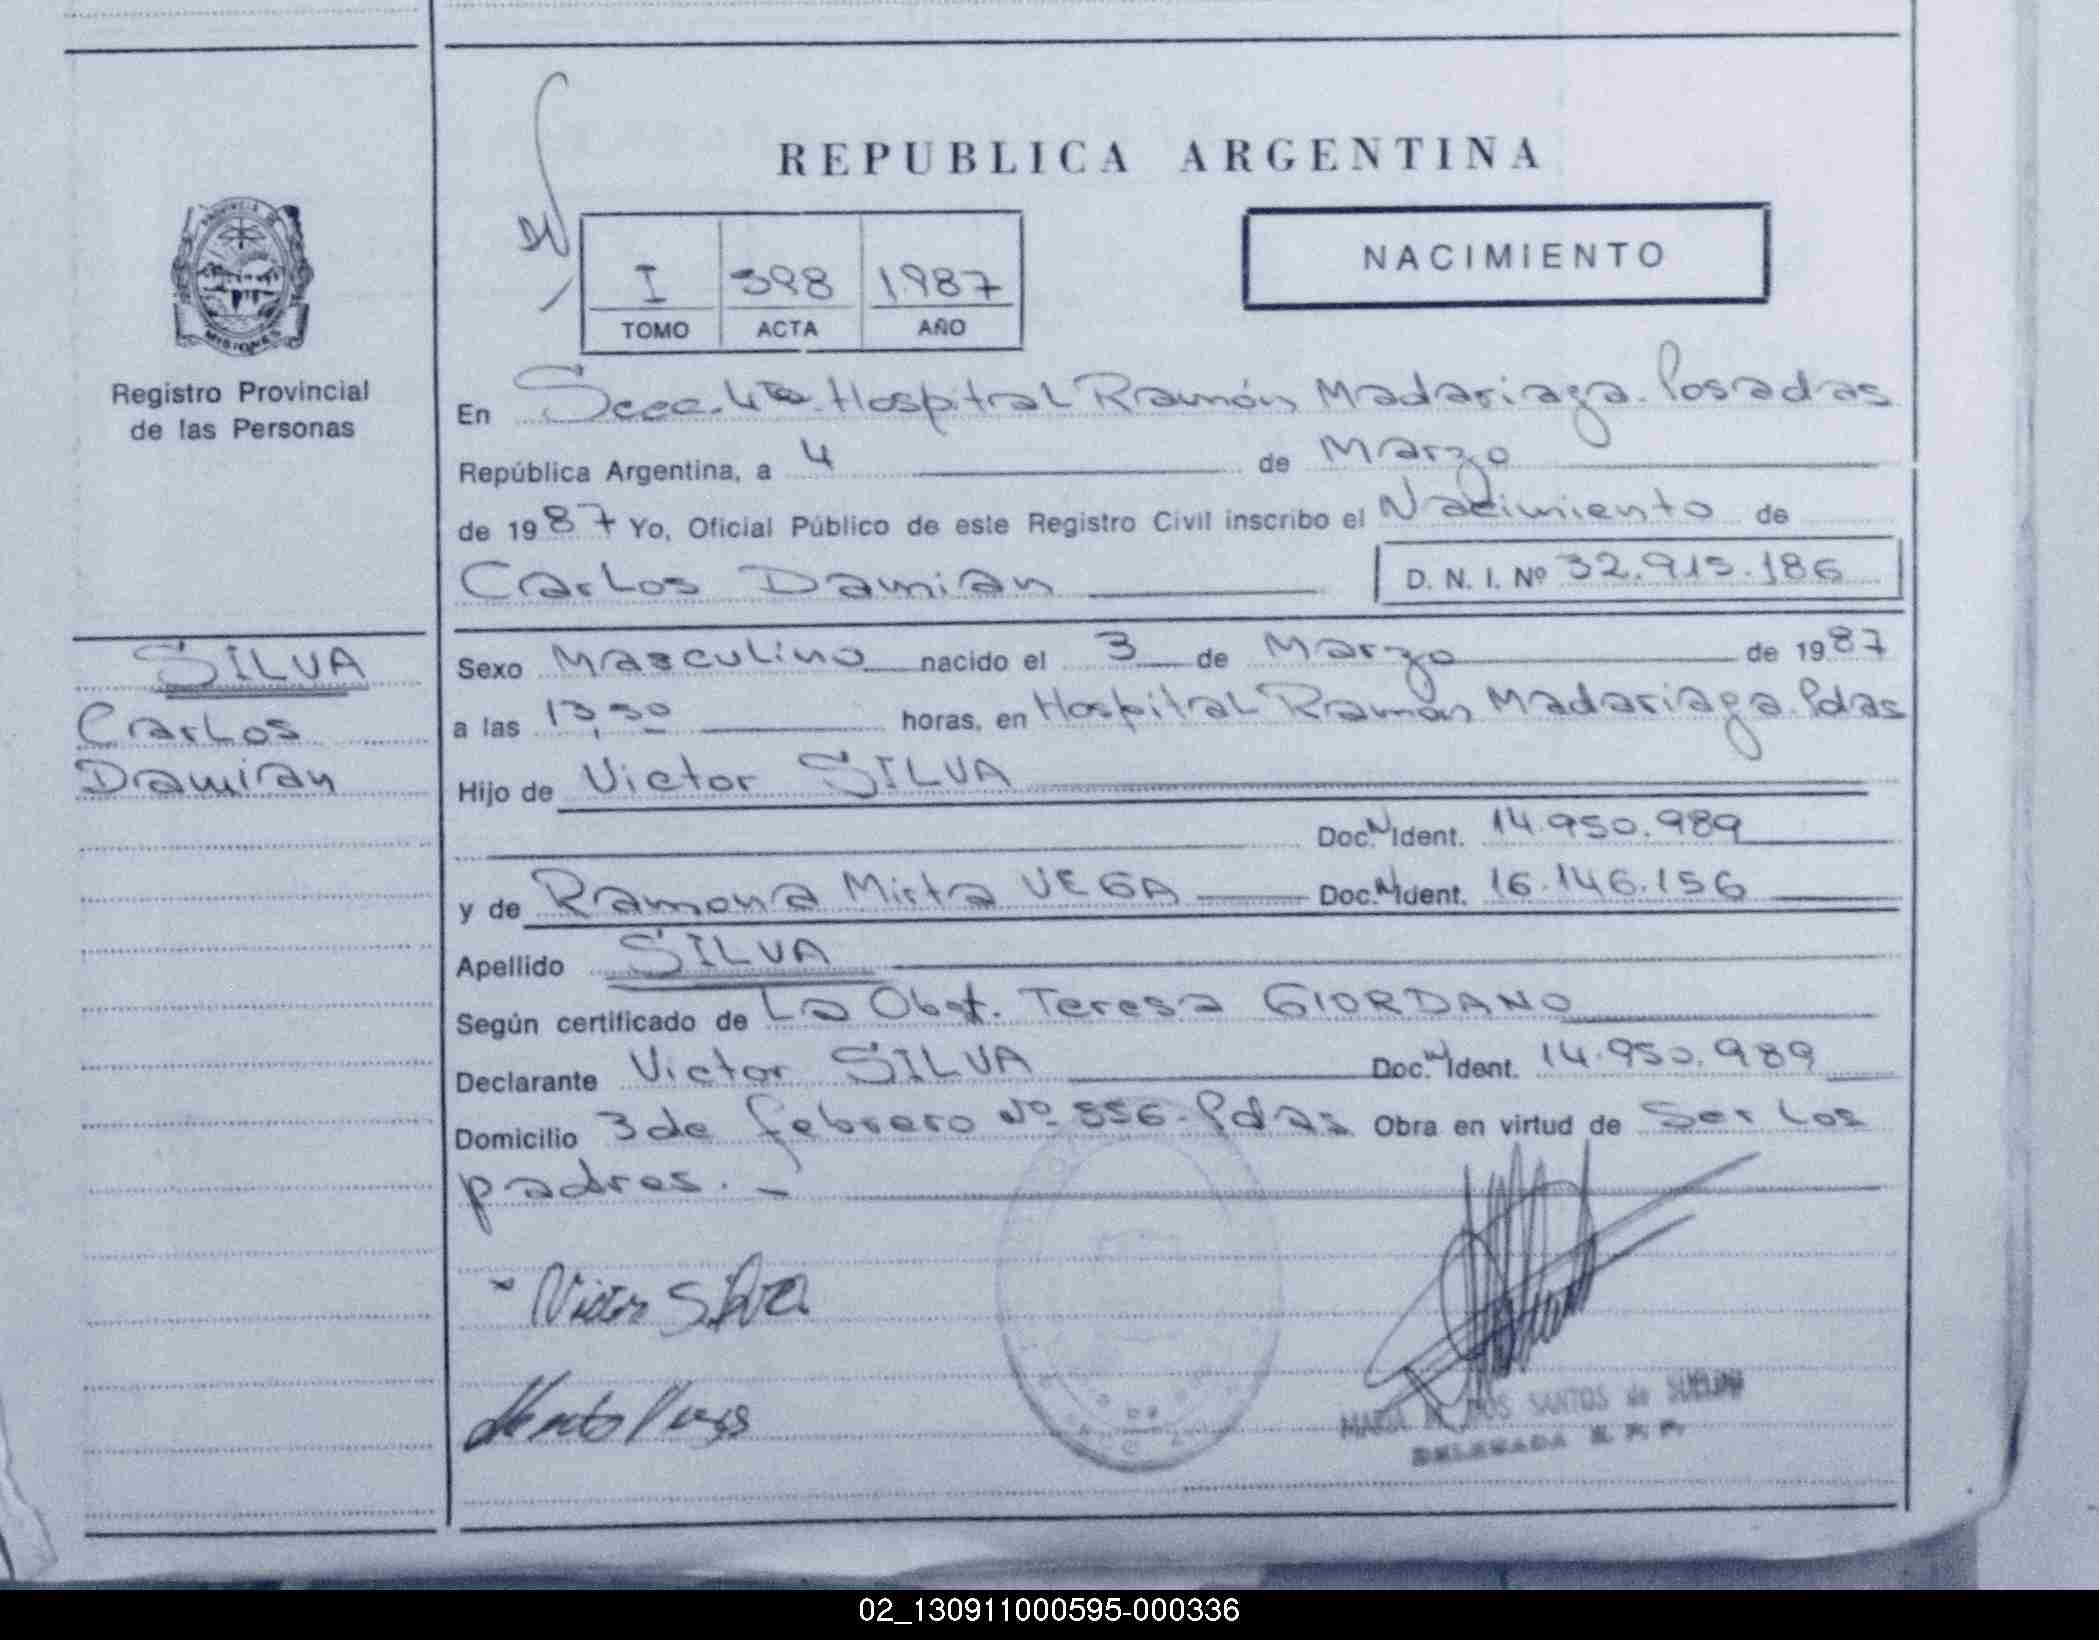 REPUBLICA ARGENTINA
NACIMIENTO
I 398 1987
TOMO ACTA AÑO
PROVINCIA DE
MISIONES
Registro Provincial
de las Personas
En Secc. 4ta. Hospital Ramón Madariaga. Posadas
República Argentina, a 4 de Marzo
de 1987 Yo, Oficial Público de este Registro Civil inscribo el Nacimiento de
Carlos Damián D. N. I. Nº 32.915.186
SILVA
Carlos
Damián
Sexo Masculino nacido el 3 de Marzo de 1987
a las 13,30 horas, en Hospital Ramón Madariaga. Pdas
Hijo de Victor SILVA
Doc. N Ident. 14.950.989
y de Ramona Mirta VEGA Doc. N Ident. 16.146.156
Apellido SILVA
Según certificado de La Obst. Teresa GIORDANO
Declarante Victor SILVA Doc. N Ident. 14.950.989
Domicilio 3 de febrero Nº 556 - Pdas Obra en virtud de Ser Los
padres. -
Victor Silva
DOS SANTOS de
DELEGADA R. P. P.
02_130911000595-000336